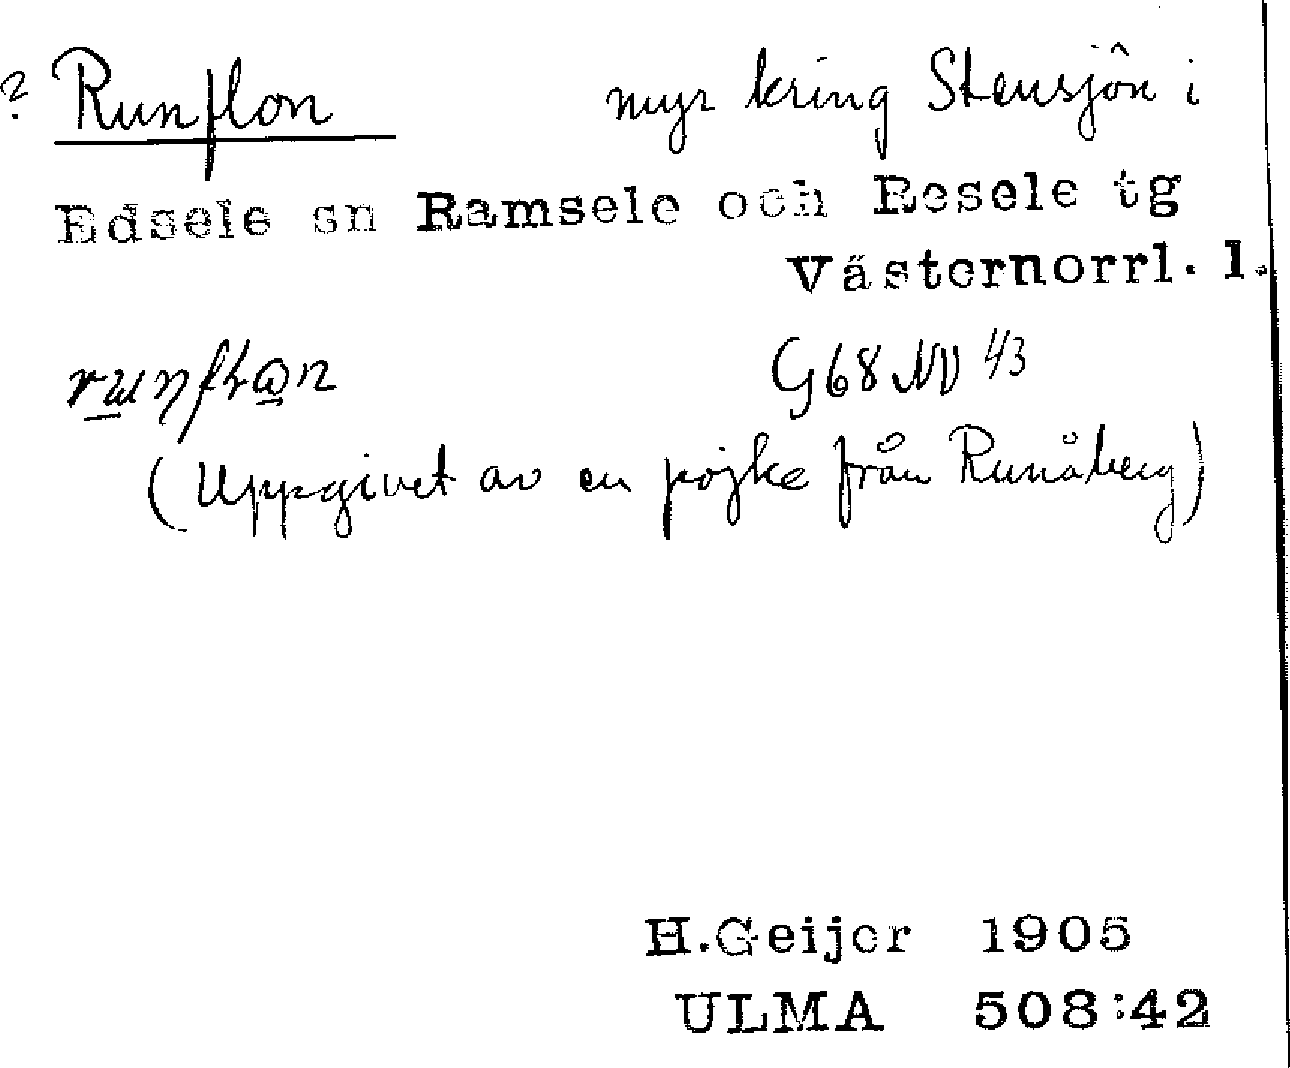 ? Runflon myr kring Stensjön i
Edsele sn Ramsele och Resele tg
Västernorrl. l.
G68 NV 43
(Uppgivet av en pojke från Runåberg)
H.Geijer 1905
ULMA 508:42